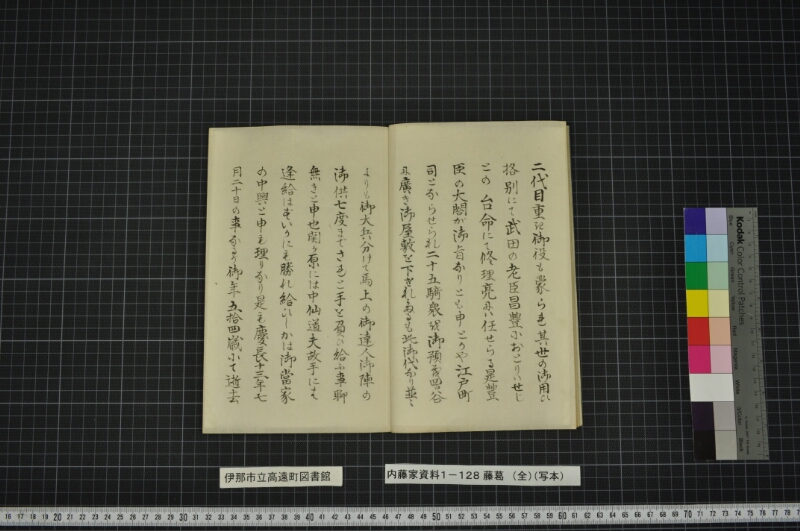 二代目重き御役も蒙らせ其世の御用に
格別にて武田の老臣昌豊におとりハせし
との 台命にて修理亮に任せらる是豊
臣の大閤か御旨なりとも申とかや江戸町
司とならせられ二十五騎衆を御預り四谷
に廣き御屋敷を下され
より御大兵分けて馬上の御達人御陣の
御供七度まてされと手を負ひ給ふ事聊
無きと申也関ヶ原には中仙道大政手にも
逢給は すいかにも勝れ給ひしかは御當家
の中興と申も理りなり是も慶長十三年七
月二十日の事なり御年五拾四歳にて逝去
伊那市立高遠町図書館
内藤家資料1－128 藤葛 （全）（写本）
Kodak Color Control Patches
Blue
Cyan
Green
Yellow
Red
Magenta
White